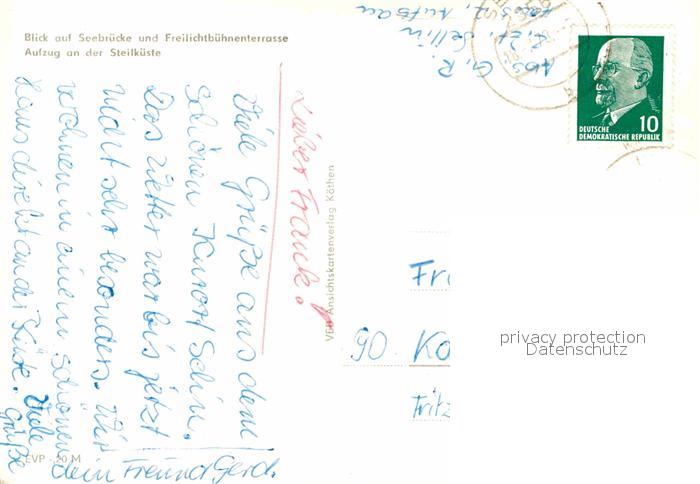 Blick auf Seebrücke und Freilichtbühnenterrasse
Aufzug an der Steilküste
Lieber Frank!
Viele Grüße aus dem
schönen Kurort Sellin.
Das Wetter war bis jetzt
nicht sehr besonders. Wir
wohnen in einem schönen
Haus direkt an der Küste. Viele
Grüße
dein Freund Gerd.
EVP -,20 M
VEB Ansichtskartenverlag Köthen
Abs. G. R.
z. Zt. Sellin
DEUTSCHE
DEMOKRATISCHE REPUBLIK
10
Fr
90 Ka
Fritz
privacy protection
Datenschutz